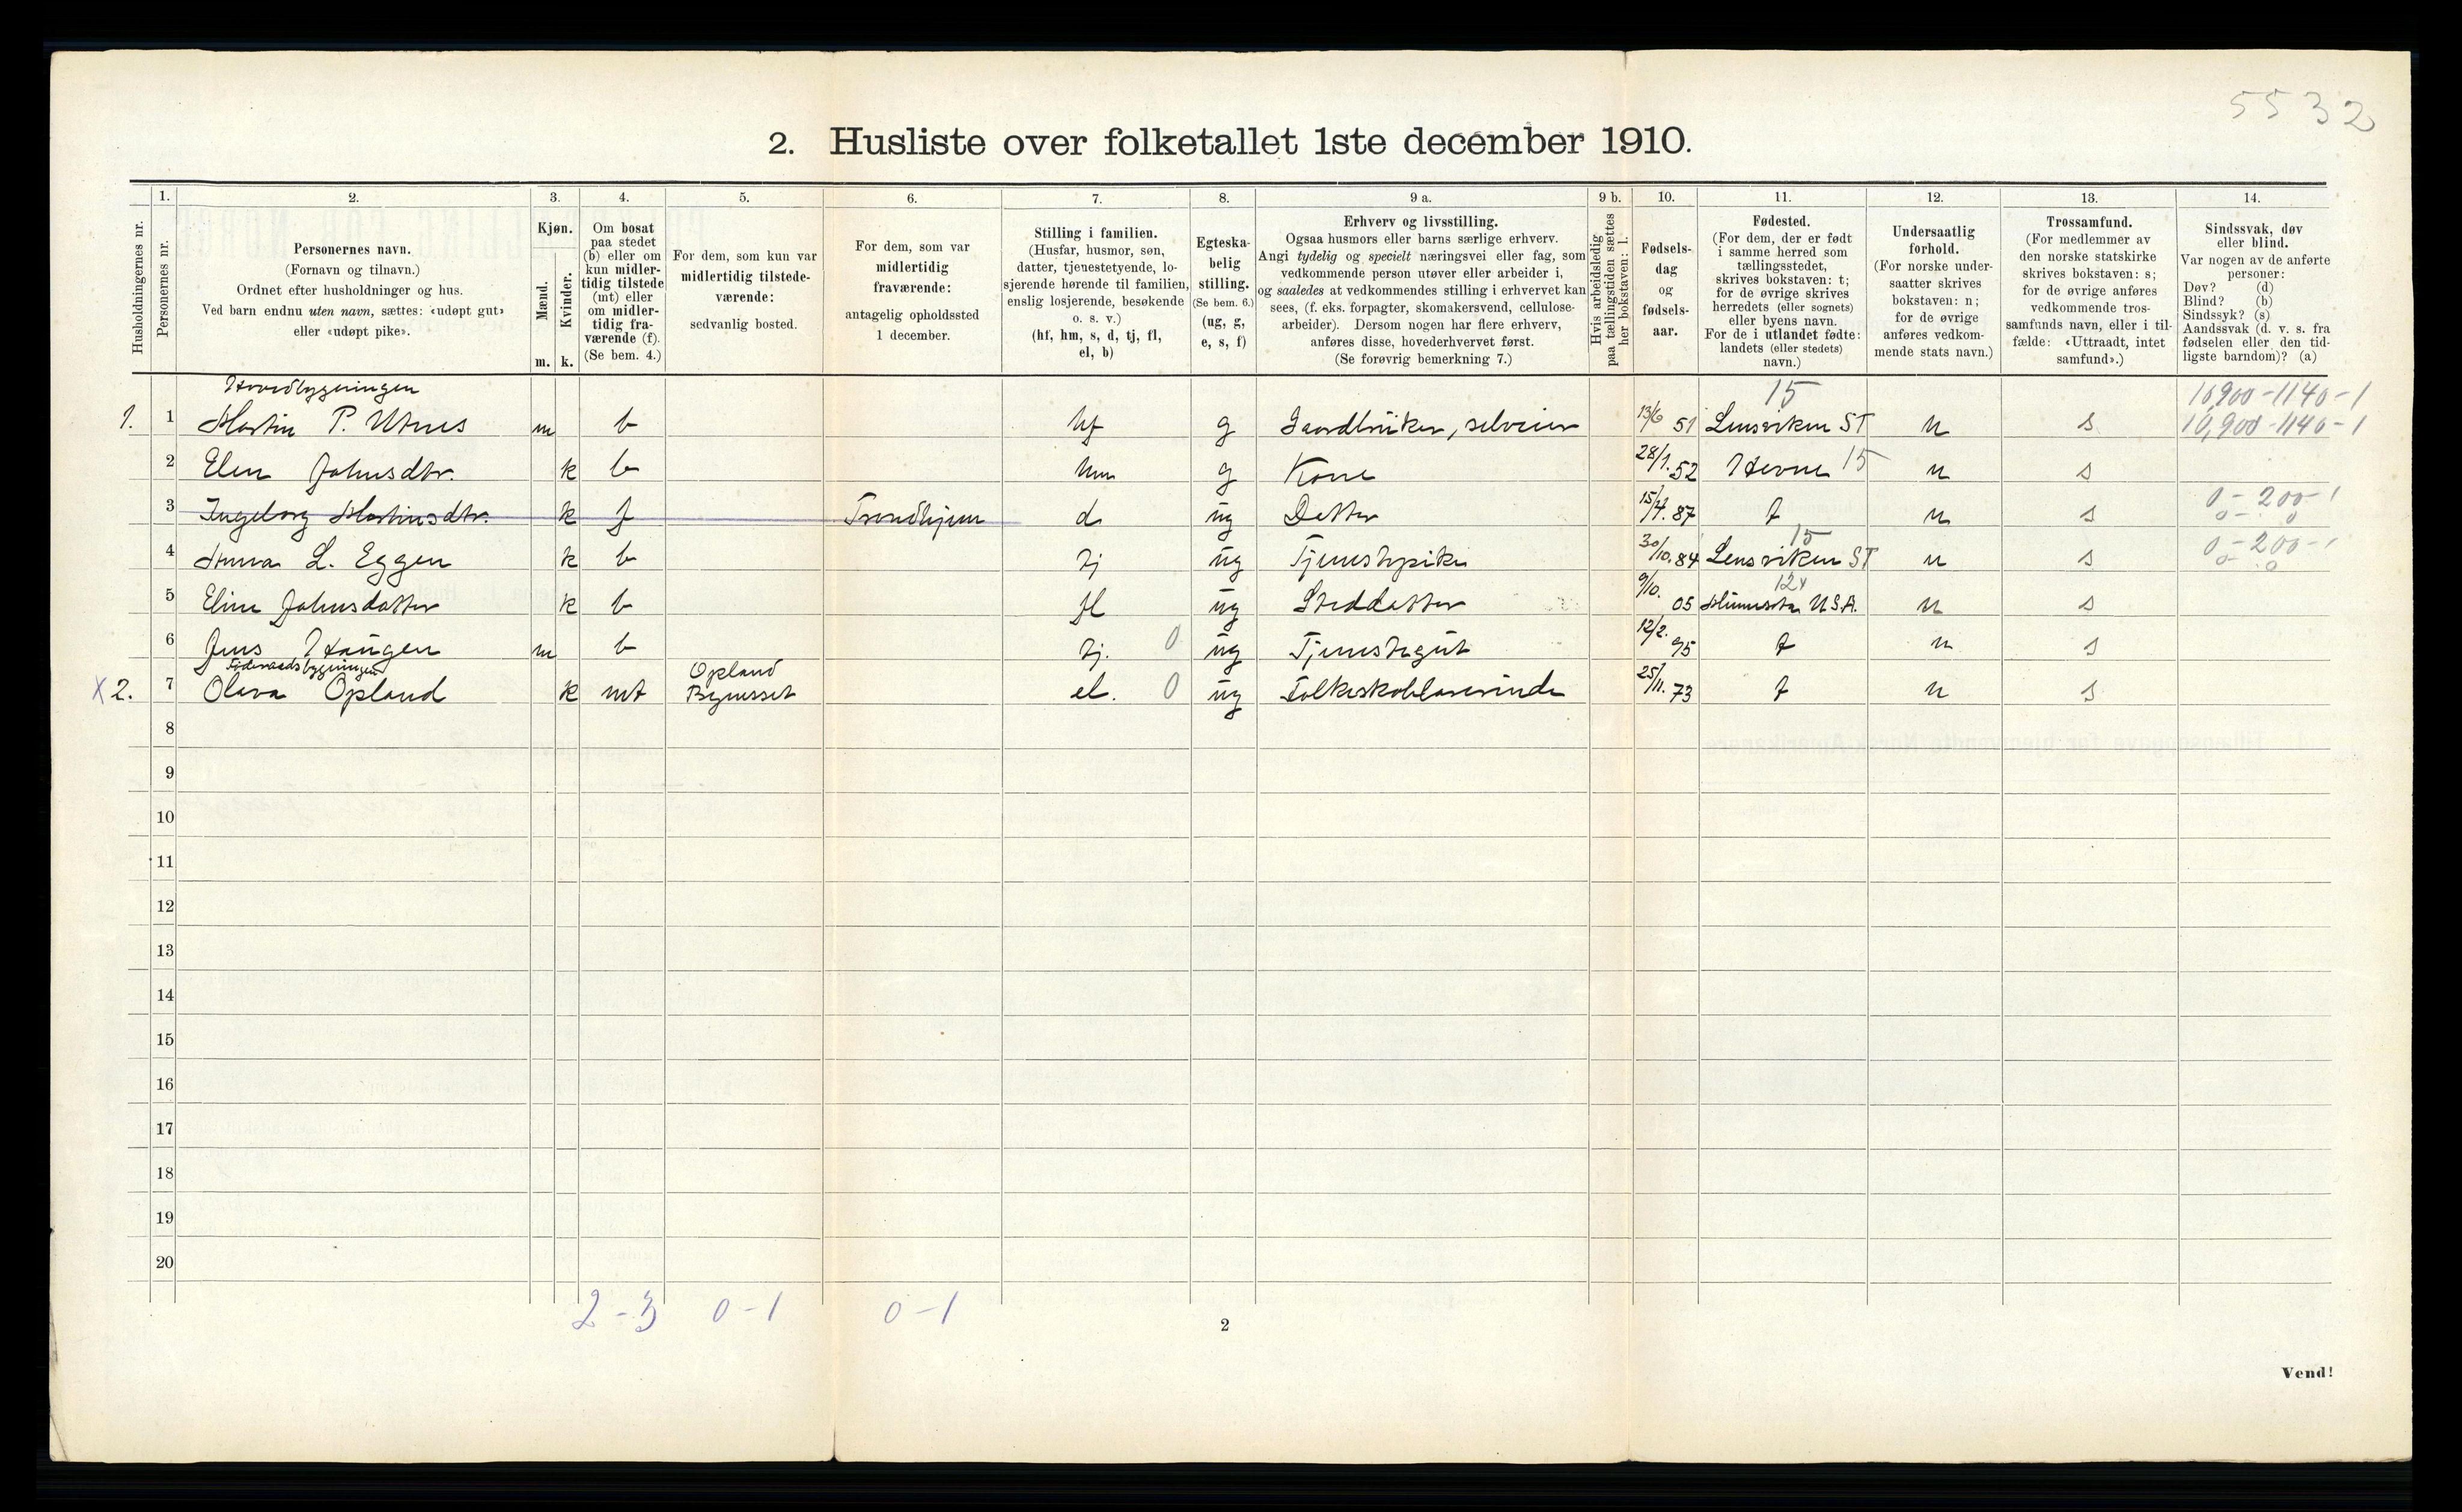 5532
2. Husliste over folketallet 1ste december 1910.
Husholdningernes nr.
1.
Personernes nr.
2.
Personernes navn.
(Fornavn og tilnavn.)
Ordnet efter husholdninger og hus.
Ved barn endnu uten navn, sættes: «udøpt gut»
eller «udøpt pike».
3.
Kjøn.
Mænd.
Kvinder.
m. k.
4.
Om bosat
paa stedet
(b) eller om
kun midler-
tidig tilstede
(mt) eller
om midler-
tidig fra-
værende (f).
(Se bem. 4.)
5.
For dem, som kun var
midlertidig tilstede-
værende:
sedvanlig bosted.
6.
For dem, som var
midlertidig
fraværende:
antagelig opholdssted
1 december.
7.
Stilling i familien.
(Husfar, husmor, søn,
datter, tjenestetyende, lo-
sjerende hørende til familien,
enslig losjerende, besøkende
o. s. v.)
(hf, hm, s, d, tj, fl,
el, b)
8.
Egteska-
belig
stilling.
(Se bem. 6.)
(ug, g,
e, s, f)
9 a.
Erhverv og livsstilling.
Ogsaa husmors eller barns særlige erhverv.
Angi tydelig og specielt næringsvei eller fag, som
vedkommende person utøver eller arbeider i,
og saaledes at vedkommendes stilling i erhvervet kan
sees, (f. eks. forpagter, skomakersvend, cellulose-
arbeider). Dersom nogen har flere erhverv,
anføres disse, hovederhvervet først.
(Se forøvrig bemerkning 7.)
9 b.
Hvis arbeidsledig
paa tællingstiden sættes
her bokstaven: l.
10.
Fødsels-
dag
og
fødsels-
aar.
11.
Fødested.
(For dem, der er født
i samme herred som
tællingsstedet,
skrives bokstaven: t;
for de øvrige skrives
herredets (eller sognets)
eller byens navn.
For de i utlandet fødte:
landets (eller stedets)
navn.)
12.
Undersaatlig
forhold.
(For norske under-
saatter skrives
bokstaven: n;
for de øvrige
anføres vedkom-
mende stats navn.)
13.
Trossamfund.
(For medlemmer av
den norske statskirke
skrives bokstaven: s;
for de øvrige anføres
vedkommende tros-
samfunds navn, eller i til-
fælde: «Uttraadt, intet
samfund».)
14.
Sindssvak, døv
eller blind.
Var nogen av de anførte
personer:
Døv? (d)
Blind? (b)
Sindssyk? (s)
Aandssvak (d. v. s. fra
fødselen eller den tid-
ligste barndom)? (a)
Hovedbygningen 15 10,900-1140-1
1. 1 Martin P. Utnes m b hf g Gaardbruker, selveier 13/6 51 Lensviken ST n s 10,900-1140-1
2 Elen Johnsdtr. k b hm g Kone 28/1. 52 Hevne 15 n s
3 Ingeborg Martinsdtr. k f Trondhjem d ug Datter 15/4. 87 t n s 0-200-1
0- 0
15
4 Anna L. Eggen k b tj ug Tjenestepike 30/10. 84 Lensviken ST n s 0-200-1
0- 0
12x
5 Eline Johnsdatter k b fl ug Steddatter 9/10. 05 Minnesota U.S.A. n s
6 Jens Haugen m b tj. 0 ug Tjenestegut 12/2. 95 t n s
Føderaadsbygningen Opland
x 2. 7 Olava Opland k mt Bynesset el. 0 ug Folkeskolelærerinde 25/11. 73 t n s
8
9
10
11
12
13
14
15
16
17
18
19
20
2-3 0-1 0-1
2
Vend!